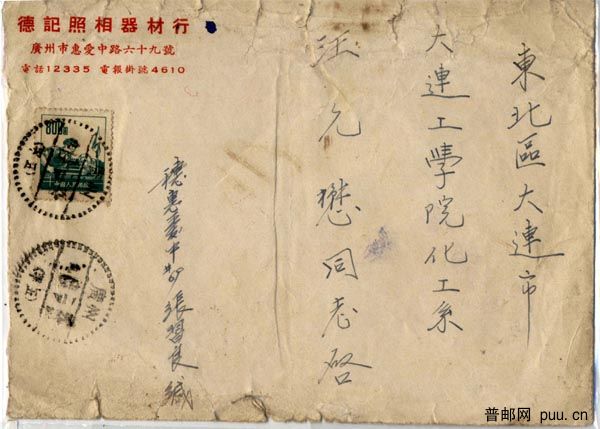 德記照相器材行
廣州市惠愛中路六十九號
電話12335 電報掛號4610
東北區大連市
大連工學院化工系
汪允懋同志啓
穗惠愛中 張習良 緘
800
廣州
普邮网 puu.cn